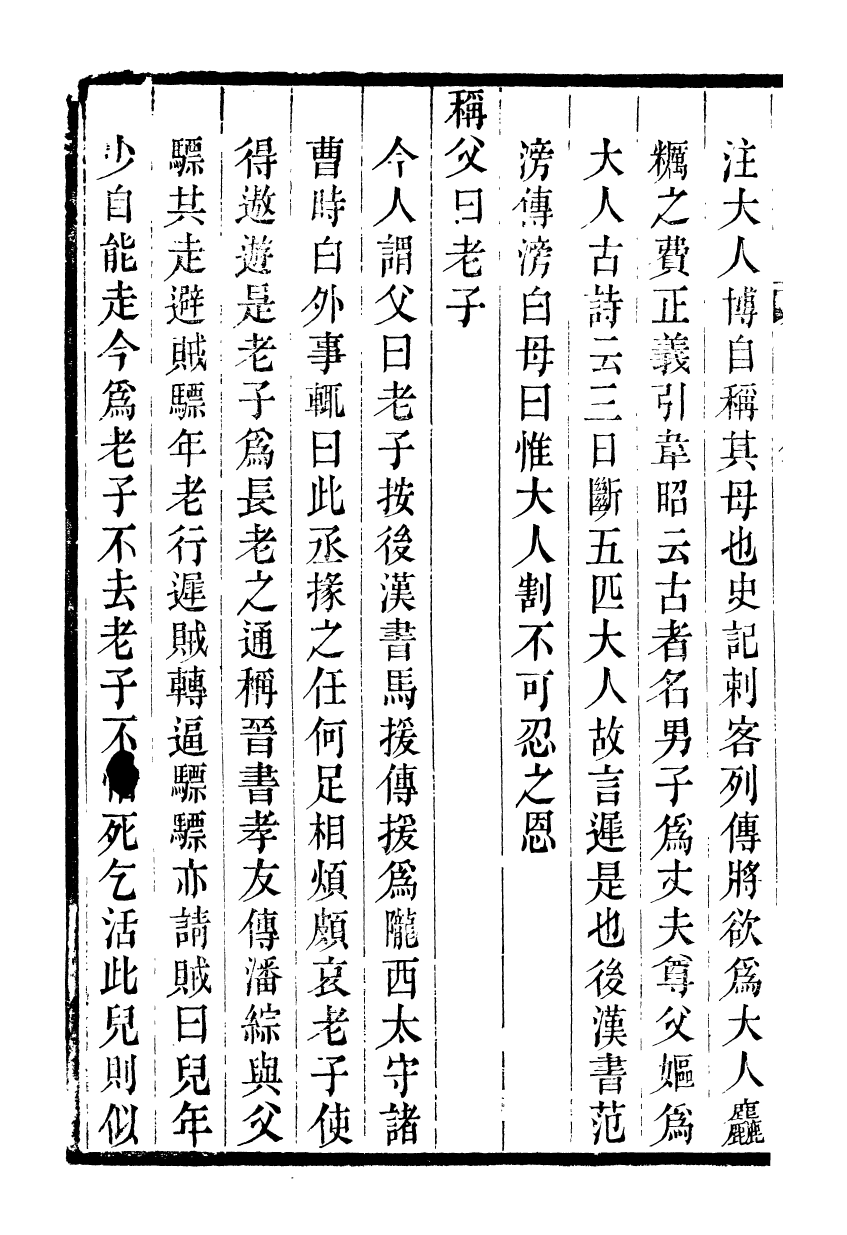 注大人博自稱其母也史記刺客列傳將欲爲大人麤
糲之費正義引韋昭云古者名男子爲丈夫尊父嫗爲
大人古詩云三日斷五匹大人故言遲是也後漢書范
滂傳滂白母曰惟大人割不可忍之恩
稱父曰老子
今人謂父曰老子按後漢書馬援傳援爲隴西太守諸
曹時白外事輒曰此丞掾之任何足相煩頗哀老子使
得遨遊是老子爲長老之通稱晉書孝友傳潘綜與父
驃共走避賊驃年老行遲賊轉逼驃驃亦請賊曰兒年
少自能走今爲老子不去老子不死乞活此兒則似